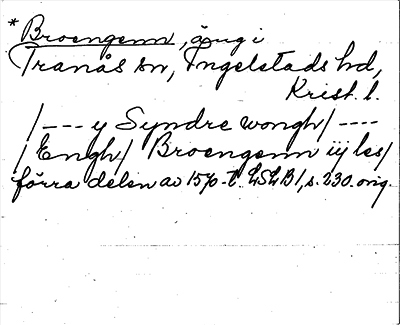 * Broengenn, äng i
Tranås sn, Ingelstads hd,
Krist. l.
/--- y Syndre wongh/ ----
/Engh/ Broengenn iij les/
förra delen av 1570-t. LSLB1, s. 230. orig.